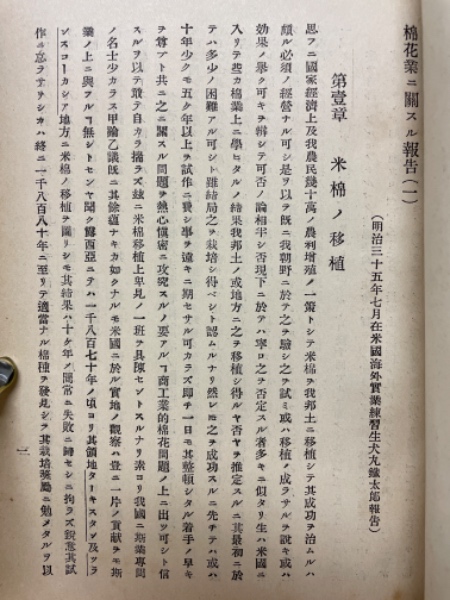 棉花業ニ關スル報告(一)
(明治三十五年七月在米國海外實業練習生犬丸鐵太郎報告)
第壹章　米棉ノ移植
思フニ國家經濟上及我農民幾十萬ノ農利增殖ノ一策トシテ米棉ヲ我邦土ニ移植シテ其成功ヲ治ムルハ
頗ル必須ノ經營ナル可シ是ヲ以テ既ニ我朝野ニ於テ之ヲ驗シ之ヲ試ミ或ハ移植ノ成ラサルヲ說キ或ハ
効果ノ擧ク可キヲ辯シテ可否ノ論相半シ否現下ニ於テハ寧ロ之ヲ否定スル者多キニ似タリ生ハ米國ニ
入リテ些カ棉業上ニ學ヒタルノ結果我邦土ノ或地方ニ之ヲ移植シ得ルヤ否ヤヲ推定スルニ其最初ニ於
テハ多少ノ困難アル可シト雖結局之ヲ栽培シ得ベシト認ムルナリ然シ𪜈之ヲ成功スルニ先チテハ或ハ
十年少クモ五ケ年以上ヲ試作ニ費シ事ヲ遠キニ期セサル可カラズ即チ一日モ其整頓シタル着手ノ早キ
ヲ尊ブト共ニ之ニ關スル問題ヲ熱心愼密ニ攻究スルノ要アルヿ商工業的棉花問題ノ上ニ出ツ可シト信
スルヲ以テ敢テ自カラ揣ラズ玆ニ米棉移植上卑見ノ一班ヲ具陳セントスルナリ素ヨリ我國ニ斯業專門
ノ名士少カラス甲論乙議既ニ其餘蘊ナキカ如クナルモ米國ニ於ル實地ノ觀察ハ豈ニ一片ノ貢獻ヲモ斯
業ノ上ニ與フルヿ無シトセンヤ聞ク露西亞ニテハ一千八百七十年ノ頃ヨリ其領地ターキスタン及ツラ
ンスコーカシア地方ニ米棉ノ移植ヲ圖リシモ其結果ハ十ケ年ノ間常ニ失敗ニ歸セシニ拘ラズ銳意其試
作ニ怠ラサリシカハ終ニ一千八百八十年ニ至リテ適當ナル棉種ヲ發見シテ其栽培奬勵ニ勉メタルヲ以
一